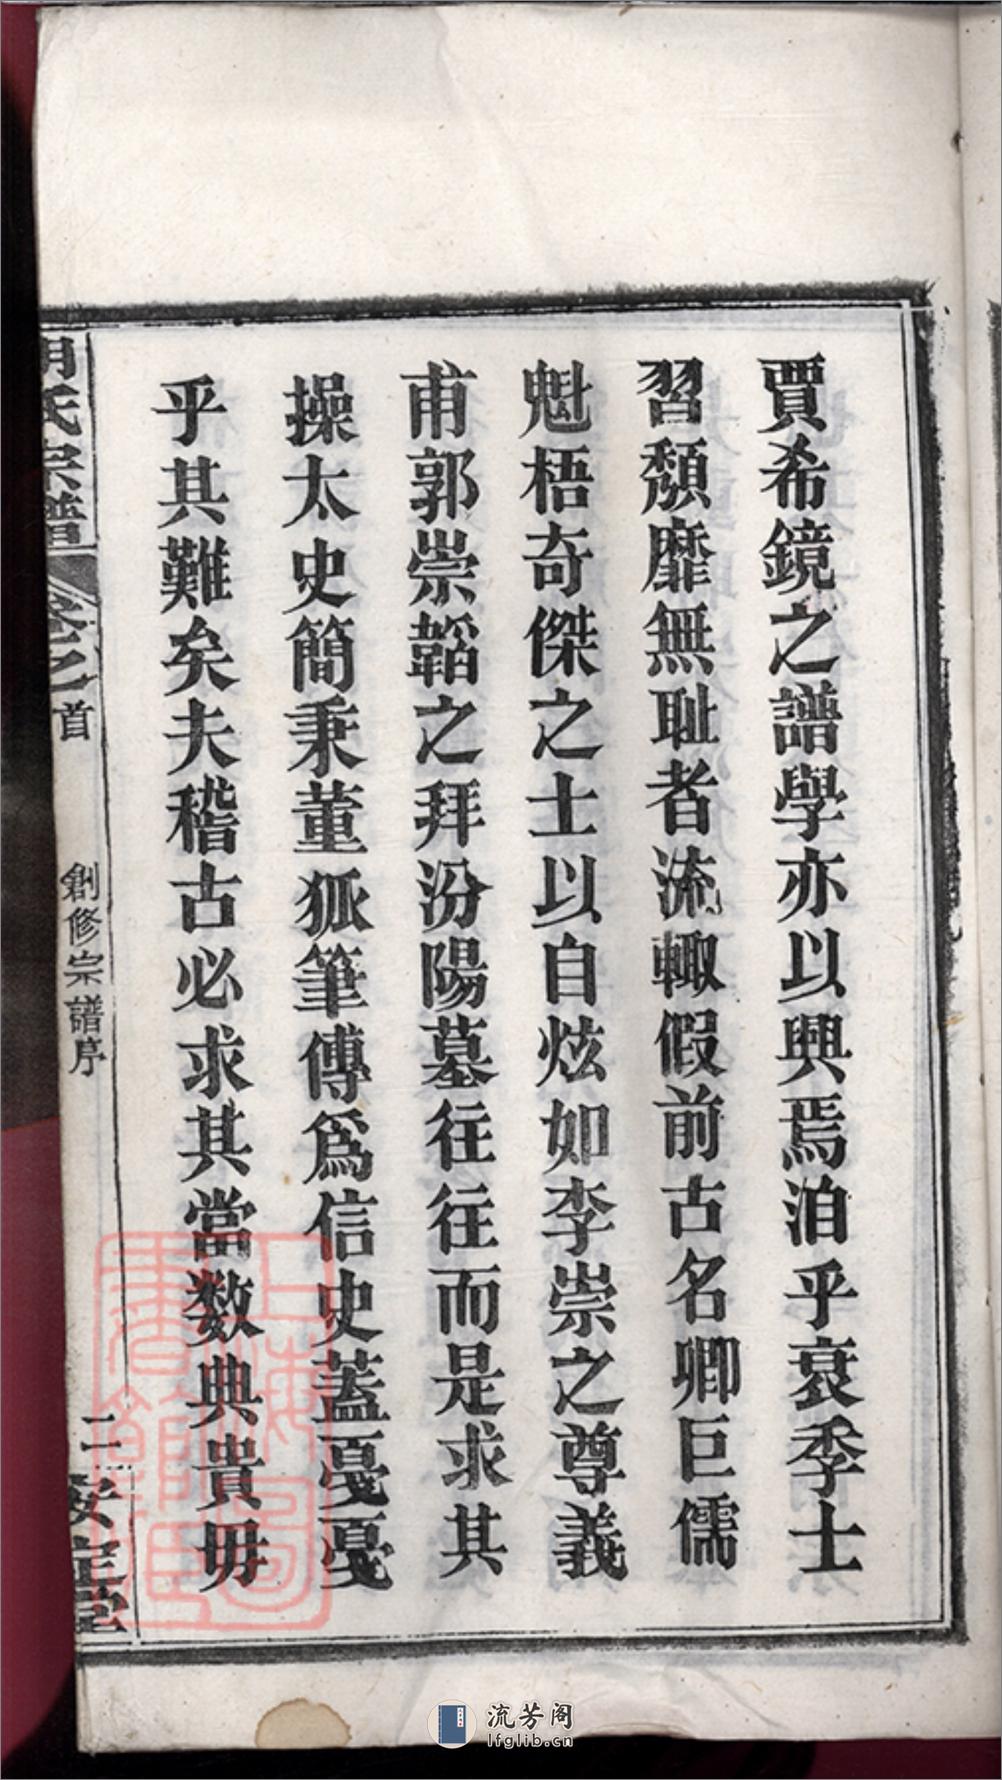 賈希鏡之譜學亦以興焉洎乎衰季士
習頹靡無耻者流輙假前古名卿巨儒
魁梧奇傑之士以自炫如李崇之尊義
甫郭崇韜之拜汾陽墓往往而是求其
操太史簡秉董狐筆傳爲信史蓋戞戞
乎其難矣夫稽古必求其當数典貴毋
胡氏宗譜
卷之首
創修宗譜序
二
安定堂
上海圖書館藏
流芳阁
lfglib.cn